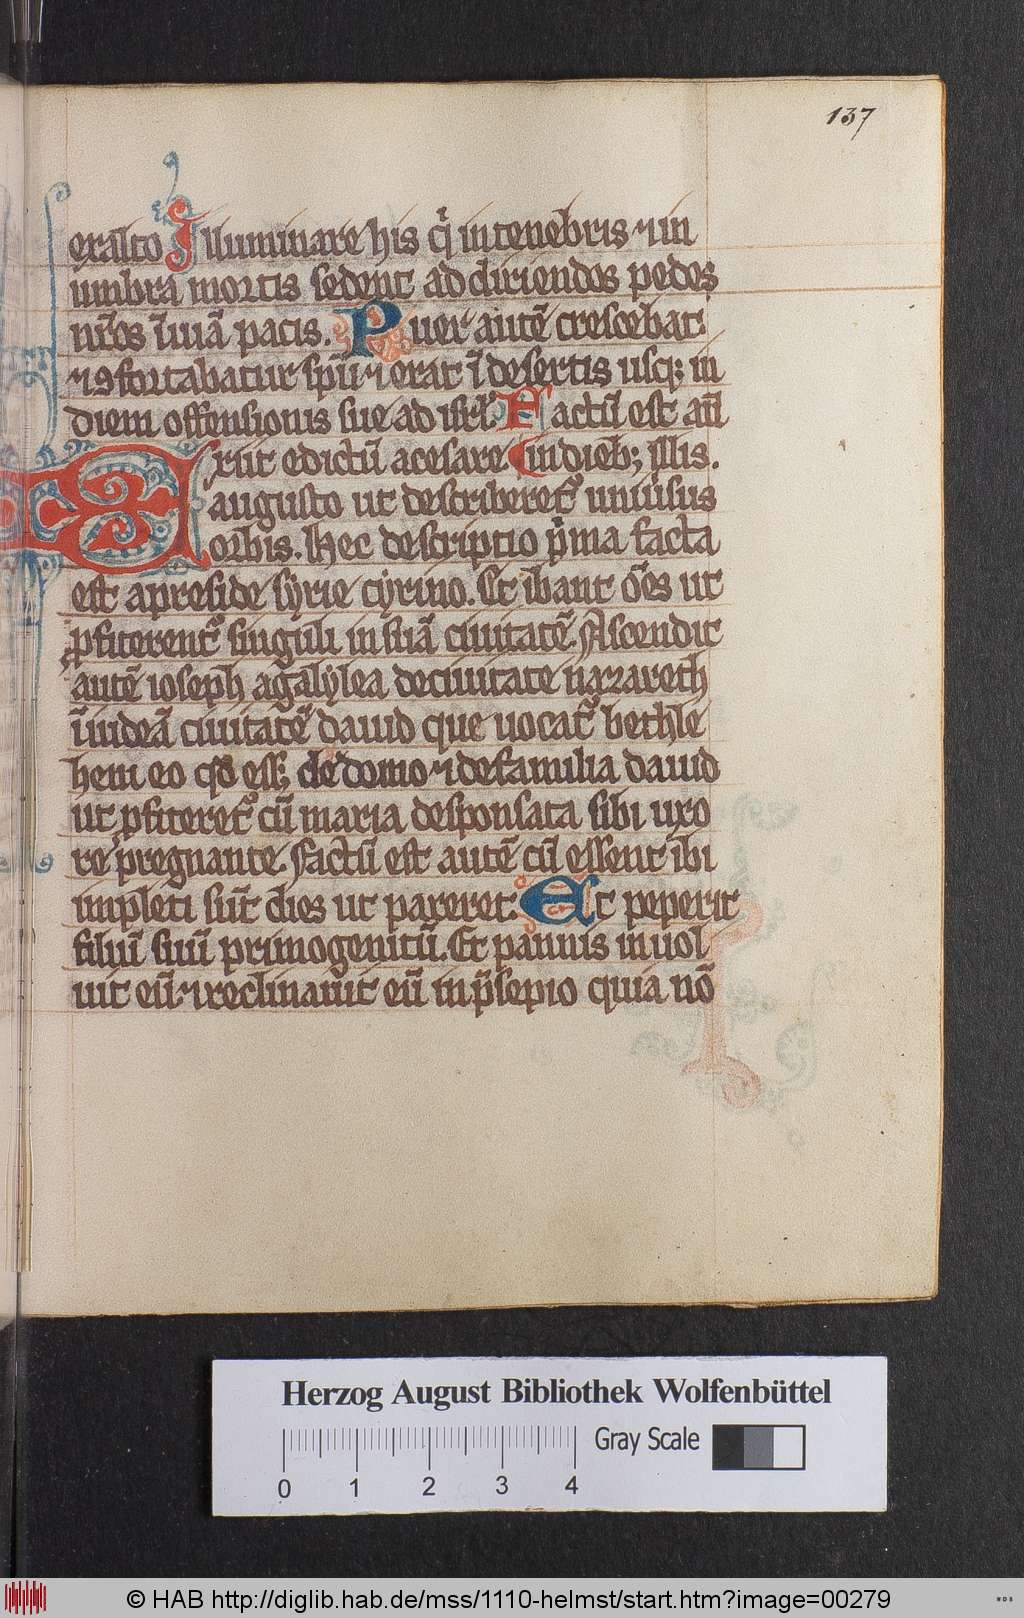 137
exalto Illuminare his q̄ in tenebris ⁊ in
umbra mortis sedent ad dirigendos pedes
nr̄os ī uiā pacis. Puer autē crescebat
⁊ ꝯfortabatur spū ⁊ erat ī desertis usq; in
diem ostensionis sue ad isrl̄. Factū est aūt
Exiit edictū a cesare in dieb; illis.
augusto ut describeret᷑ uniūsus
orbis. Hec descriptio p̄ma facta
est a preside syrie cyrino. Et ibant ōes ut
ꝓfiterent᷑ singuli in suā ciuitatē. Ascendit
autē ioseph a galylea de ciuitate nazareth
ī iudeā ciuitatē dauid que uocat᷑ bethle
hem eo qd̄ ess; de domo ⁊ de familia dauid
ut ꝓfiteret᷑ cū maria desponsata sibi uxo
re pregnante. Factū est autē cū essent ibi
impleti sūt dies ut pareret. Et peperit
filiū suū primogenitū. Et pannis inuol
uit eū ⁊ reclinauit eū in p̄sepio quia nō
Herzog August Bibliothek Wolfenbüttel
Gray Scale
0 1 2 3 4
© HAB http://diglib.hab.de/mss/1110-helmst/start.htm?image=00279